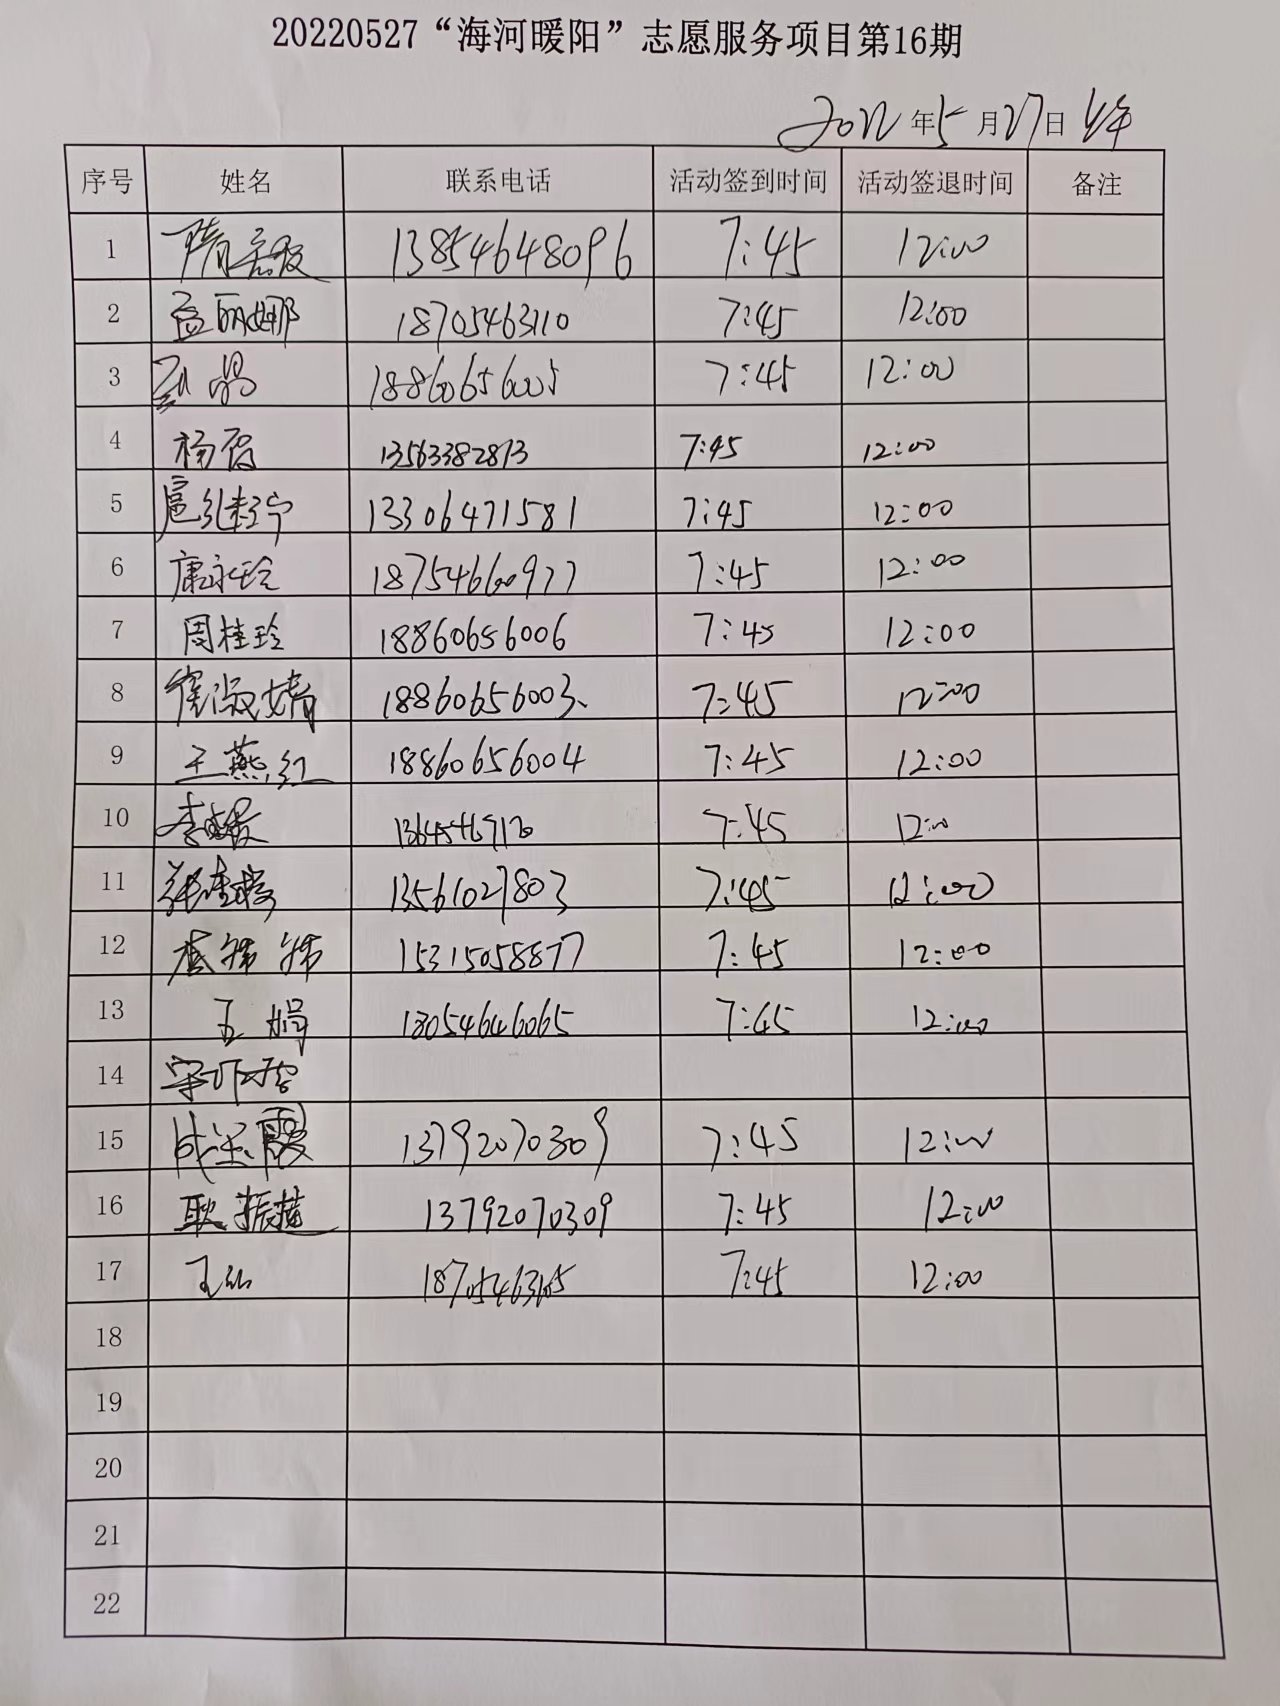 20220527“海河暖阳”志愿服务项目第16期
2022年5月27日
序号 姓名 联系电话 活动签到时间 活动签退时间 备注
1 13854648096 7:45 12:00
2 孟丽娜 18705463110 7:45 12:00
3 18860656005 7:45 12:00
4 杨霞 13563382873 7:45 12:00
5 13306471581 7:45 12:00
6 康永玲 18754660977 7:45 12:00
7 周桂玲 18860656006 7:45 12:00
8 崔淑婧 18860656003、 7:45 12:00
9 王燕红 18860656004 7:45 12:00
10 7:45 12:00
11 13561027803 7:45 12:00
12 15315058877 7:45 12:00
13 王娟 18054646065 7:45 12:00
14
15 成玉霞 13792070309 7:45 12:00
16 耿振 13792070309 7:45 12:00
17 王 7:45 12:00
18
19
20
21
22